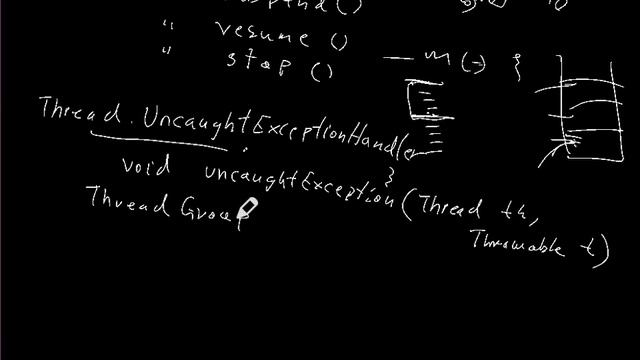 " resume ()
" stop () — m (-) {
Thread . UncaughtExceptionHandler
}
void uncaughtException (Thread th,
Throwable t)
Thread Group